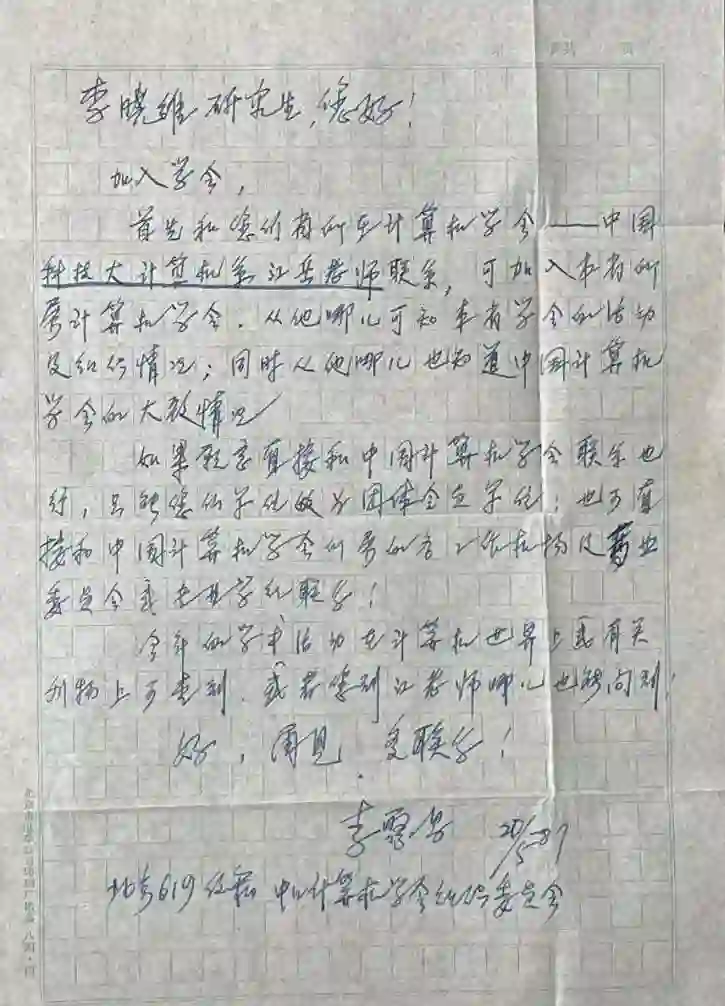 李晓维研究生，您好！
加入学会，
首先和您们省所在计算机学会——中国
科技大计算机系江岳老师联系，可加入本省所
属计算机学会．从他哪儿可知本省学会的活动
及组织情况；同时从他哪儿也知道中国计算机
学会的大致情况
如果愿意直接和中国计算机学会联系也
行，只能您们单位做为团体会员单位；也可直
接和中国计算机学会所属的各工作机构及专业
委员会或者其学组联系！
今年的学术活动在计算机世界上或有关
刊物上可查到．或者您到江老师哪儿也能问到！
好，再见．多联系！
李 20/5-87
北京619信箱 中国计算机学会组织委员会